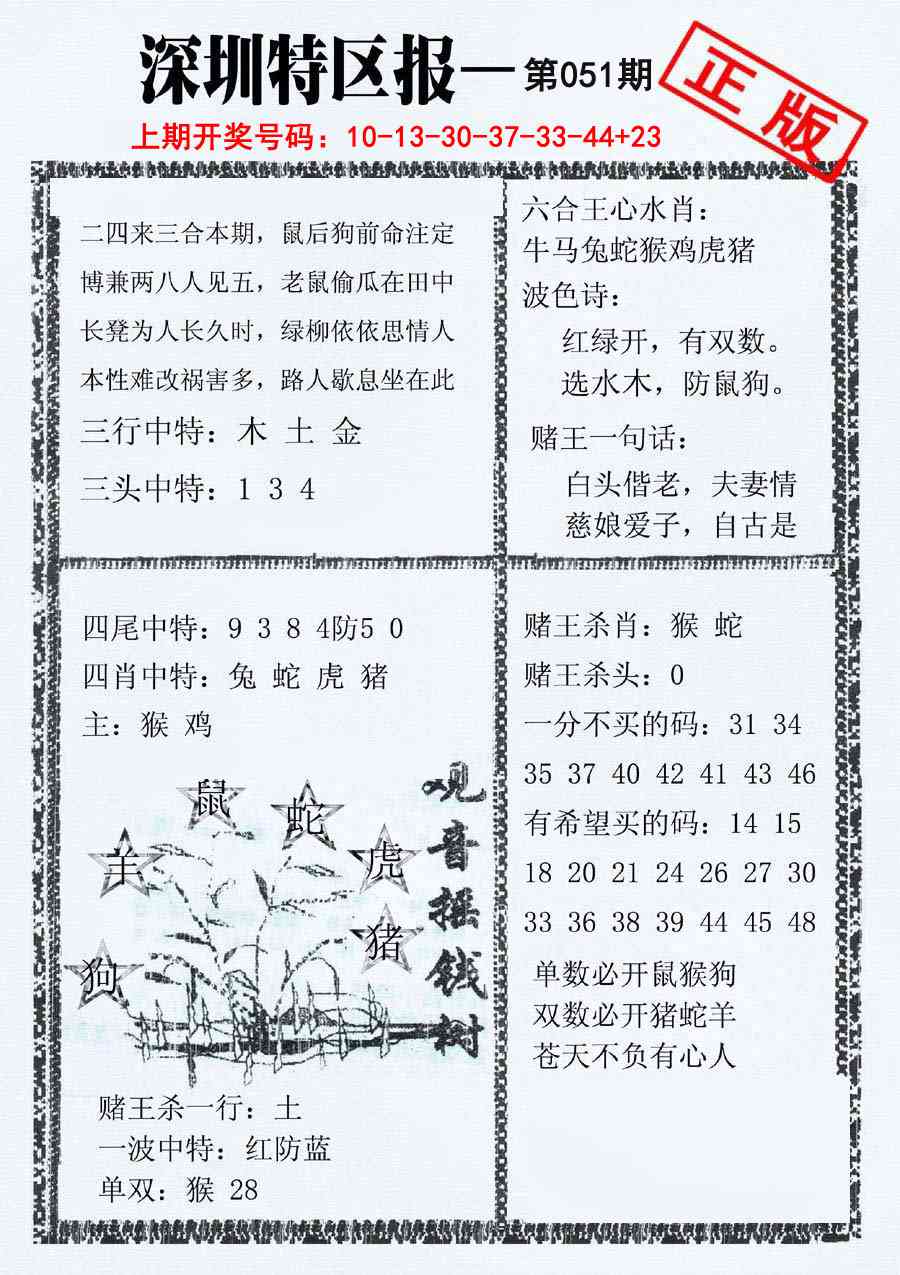 深圳特区报—第051期
正版
上期开奖号码：10-13-30-37-33-44+23
二四来三合本期，鼠后狗前命注定
博兼两八人见五，老鼠偷瓜在田中
长凳为人长久时，绿柳依依思情人
本性难改祸害多，路人歇息坐在此
三行中特：木 土 金
三头中特：1 3 4
六合王心水肖：
牛马兔蛇猴鸡虎猪
波色诗：
红绿开，有双数。
选水木，防鼠狗。
赌王一句话：
白头偕老，夫妻情
慈娘爱子，自古是
四尾中特：9 3 8 4防5 0
四肖中特：兔 蛇 虎 猪
主：猴 鸡
鼠
蛇
羊
虎
猪
狗
观音摇钱树
赌王杀一行：土
一波中特：红防蓝
单双：猴 28
赌王杀肖：猴 蛇
赌王杀头：0
一分不买的码：31 34
35 37 40 42 41 43 46
有希望买的码：14 15
18 20 21 24 26 27 30
33 36 38 39 44 45 48
单数必开鼠猴狗
双数必开猪蛇羊
苍天不负有心人